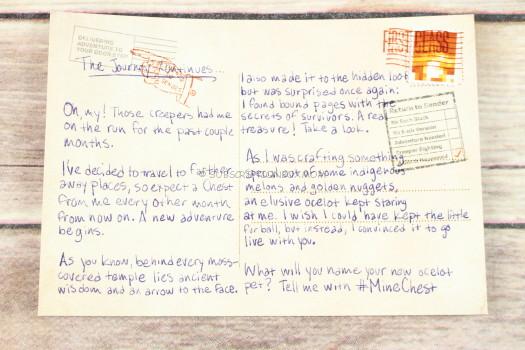 DELIVERING
ADVENTURE TO
YOUR DOORSTEP
The Journey Continues...
Oh, my! Those creepers had me
on the run for the past couple
months.
I've decided to travel to farther
away places, so expect a Chest
from me every other month
from now on. A new adventure
begins.
As you know, behind every moss-
covered temple lies ancient
wisdom and an arrow to the face.
FIRST CLASS
I also made it to the hidden loot
but was surprised once again:
I found bound pages with the
secrets of survivors. A real
treasure! Take a look.
As I was crafting something
special out of some indigenous
melons and golden nuggets,
an elusive ocelot kept staring
at me. I wish I could have kept the little
furball, but instead, I convinced it to go
live with you.
What will you name your new ocelot
pet? Tell me with #MineChest
Return to Sender
No Such Block
No Such Version
Adventure Needed
Creeper Fighting